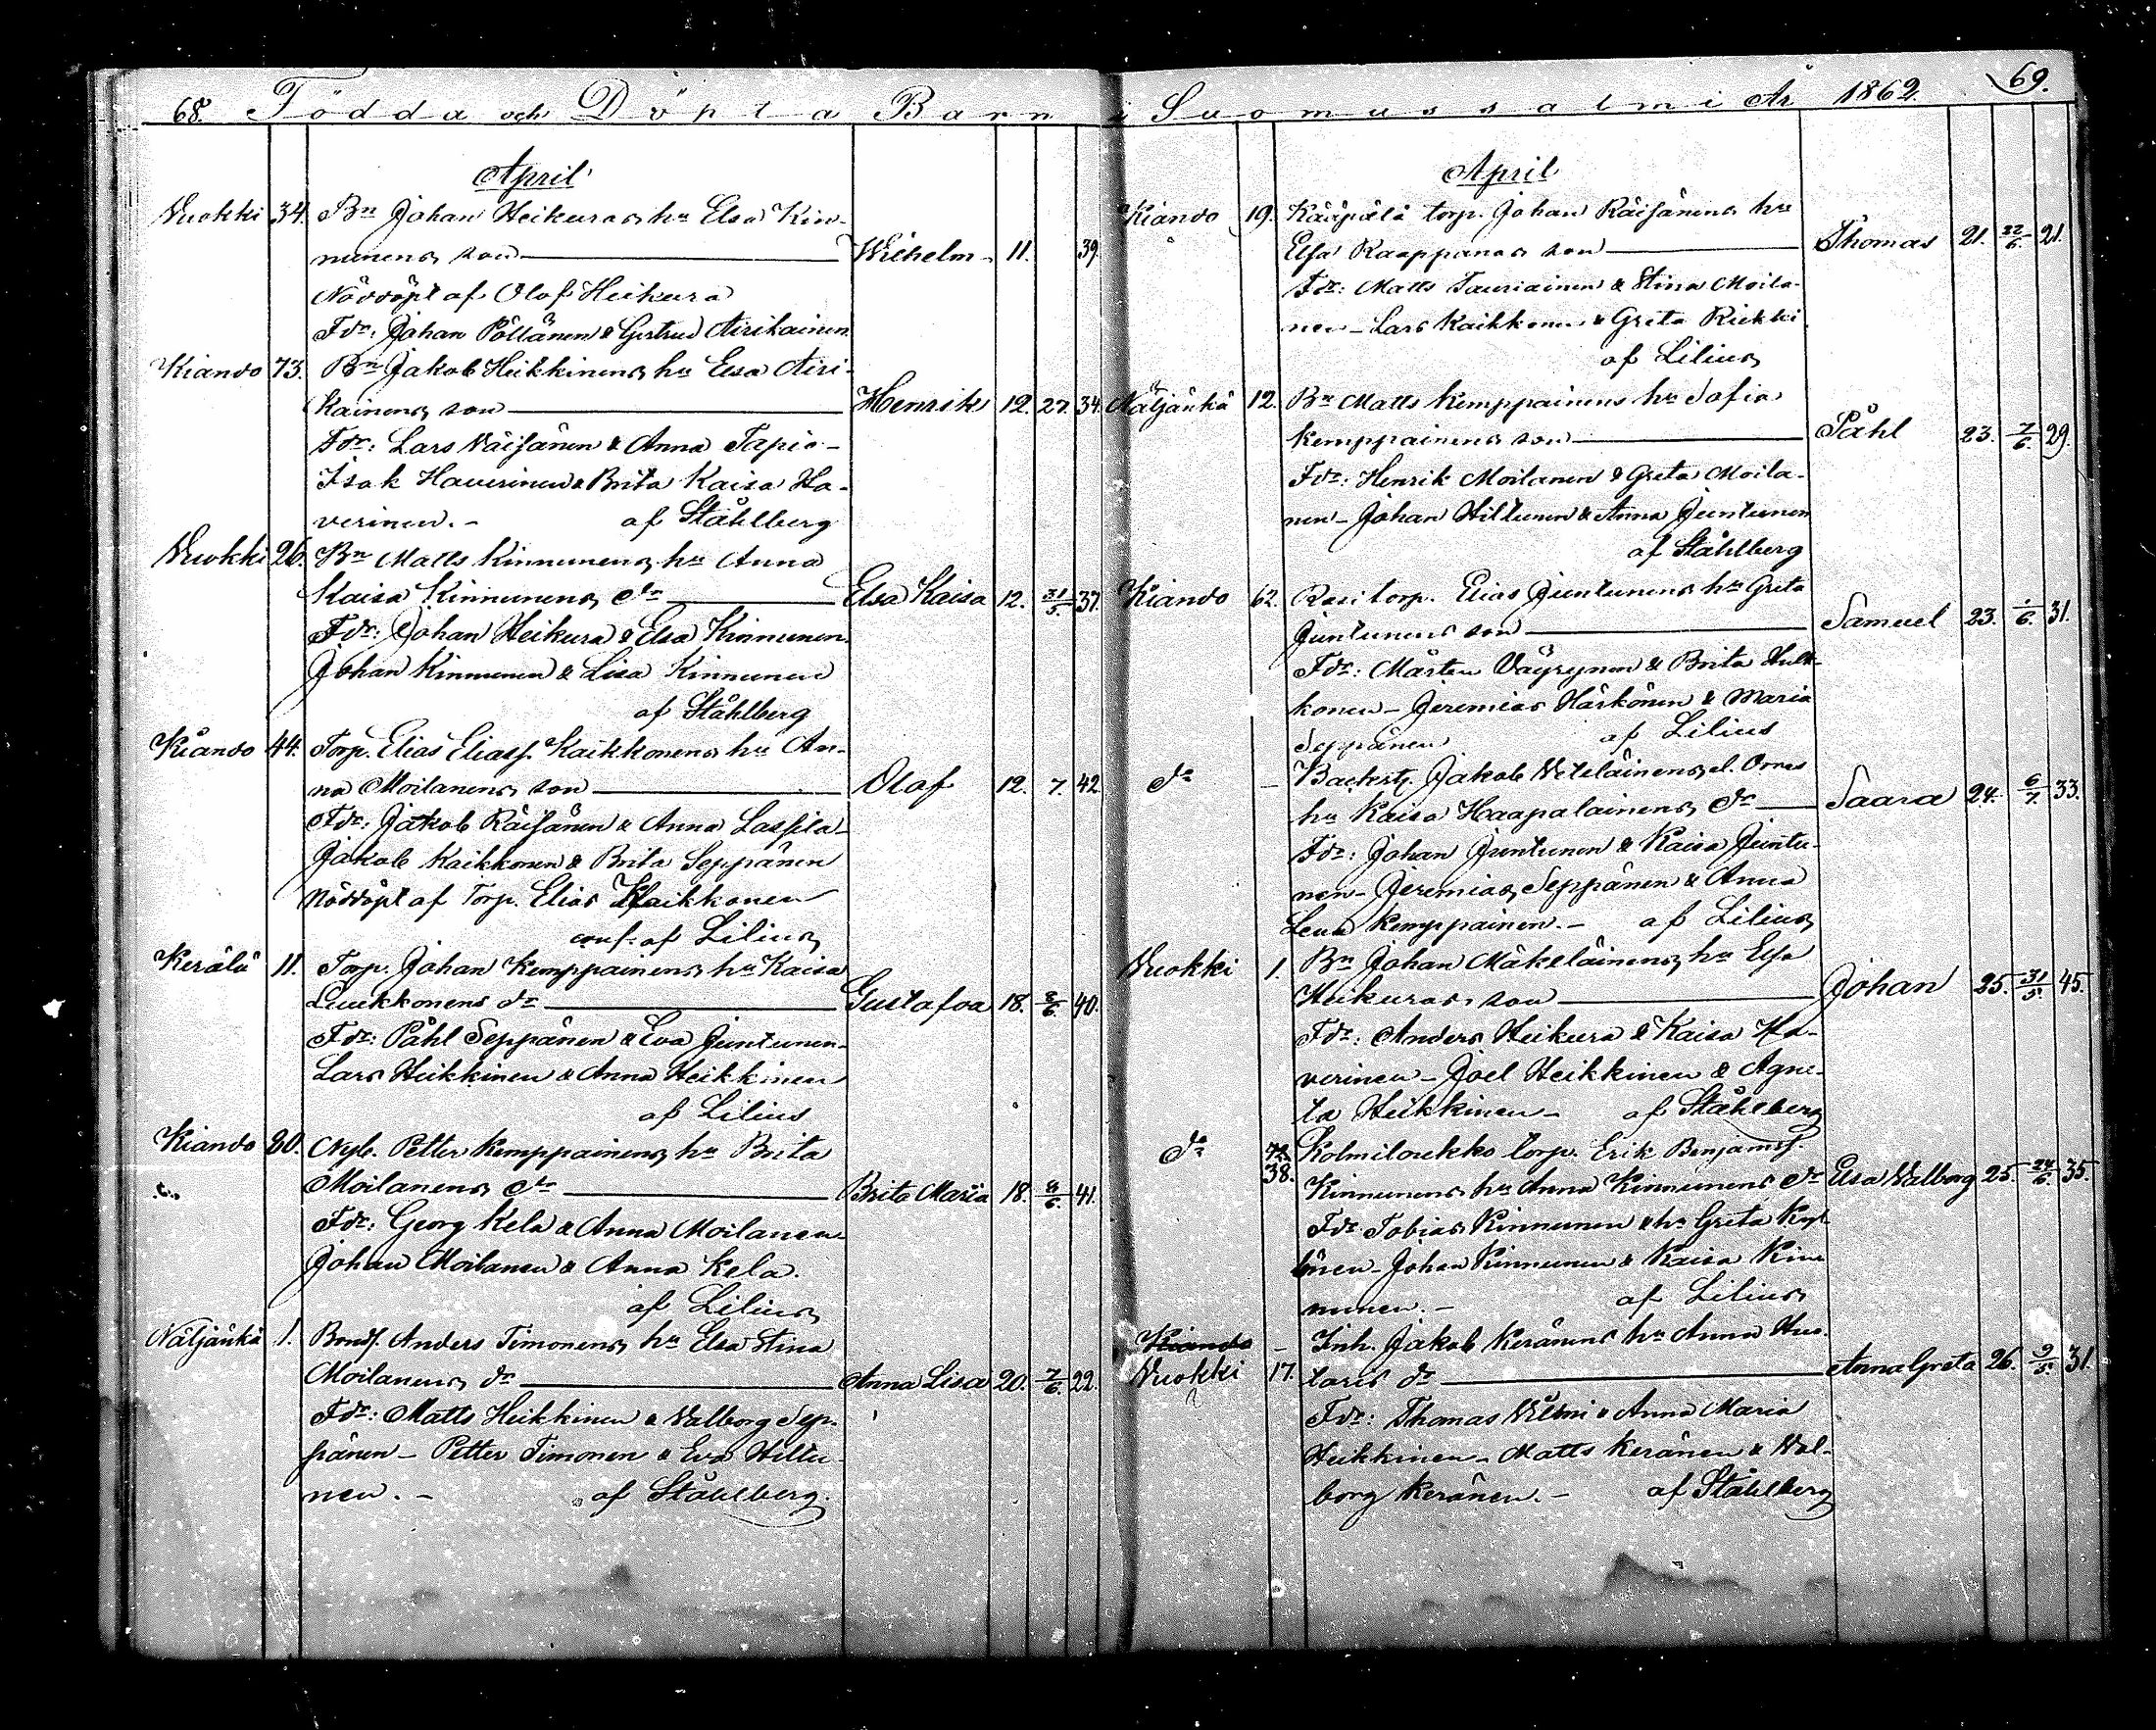 68. Födda och Döpta Barn i Suomussalmi År 1862. 69.
April
Vuokki 34. Bn Johan Heikuras hu Elsa Kin-
nunens son Wilhelm 11. 39.
Nöddöpt af Olof Heikura
Fdr: Johan Pöllänen & Gertrud Airikainen
Kiando 73. Bn Jakob Heikkinens hu Elsa Airi-
kainens son Henrik 12. 27. 34.
Fdr: Lars Väisänen & Anna Tapio-
Isak Hauerinen & Brita Kaisa Ha-
verinen. - af Ståhlberg
Vuokki 26. Bn Matts Kinnunens hu Anna
Kaisa Kinnunens dr Elsa Kaisa 12. 31/5. 37.
Fdr: Johan Heikura & Elsa Kinnunen.
Johan Kinnunen & Lisa Kinnunen
af Ståhlberg
Kiando 44. Torp. Elias Eliass. Kaikkonens hu An-
na Moilanens son Olof 12. 7. 42
Fdr: Jakob Räisänen & Anna Lassila-
Jakob Kaikkonen & Brita Seppänen
Nöddöpt af Torp. Elias Kaikkonen
conf. af Lilius
Kerälä 11. Torp. Johan Kemppainens hu Kaisa
Luukkonens dr Gustafva 18. 8/6. 40.
Fdr: Påhl Seppänen & Eva Juntunen-
Lars Heikkinen & Anna Heikkinen
af Lilius
Kiando 20. Nyb. Petter Kemppainens hu Brita
Moilanens dr Brita Maria 18. 8/6. 41.
Fdr: Georg Kela & Anna Moilanen-
Johan Moilanen & Anna Kela.
af Lilius
Näljänkä 1. Bonds. Anders Timonens hu Elsa Stina
Moilanens dr Anna Lisa 20. 7/6. 22.
Fdr: Matts Heikkinen & Valborg Sep-
pänen - Petter Timonen & Eva Hiltu-
nen. - af Ståhlberg.
April
Kiando 19. Kääpälä torp. Johan Räisänens hu
Elsa Kaappanas son Thomas 21. 22/6. 21.
Fdr: Matts Tauriainen & Stina Moila-
nen - Lars Kaikkonen & Greta Riekki
af Lilius
Näljänkä 12. Bn Matts Kemppainens hu Sofia
Kemppainens son Påhl 23. 7/6. 29.
Fdr: Henrik Moilanen & Greta Moila-
nen - Johan Hiltunen & Anna Juntunen
af Ståhlberg
Kiando 62. Rasi torp. Elias Juntunens hu Greta
Juntunens son Samuel 23. 1/6. 31.
Fdr: Mårten Väyrynen & Brita Hulk-
konen - Jeremias Härkönen & Maria
Seppänen af Lilius
dr - Backstg. Jakob Veteläinens el. Ornes
hu Kaisa Haapalainens dr Saara 24. 6/7. 33.
Fdr: Johan Juntunen & Kaisa Juntu-
nen - Jeremias Seppänen & Anna
Lena Kemppainen. - af Lilius
Vuokki 1. Bn Johan Mäkeläinens hu Elsa
Heikuras son Johan 25. 31/5. 45.
Fdr: Anders Heikura & Kaisa Ha-
verinen - Joel Heikkinen & Agne-
ta Heikkinen - af Ståhlberg
dr 38. Kolmiloukko torp. Erik Benjamss.
Kinnunens hu Anna Kinnunens dr Elsa Valborg 25. 24/6. 35.
Fdr Tobias Kinnunen & hu Greta Kyl-
lönen - Johan Kinnunen & Kaisa Kin-
nunen. - af Lilius
Kiando - Inh. Jakob Keränens hu Anna Huo-
Vuokki 17. taris dr Anna Greta 26. 9/5. 31.
Fdr: Thomas Vilmi & Anna Maria
Heikkinen - Matts Keränen & Val-
borg Keränen. - af Ståhlberg